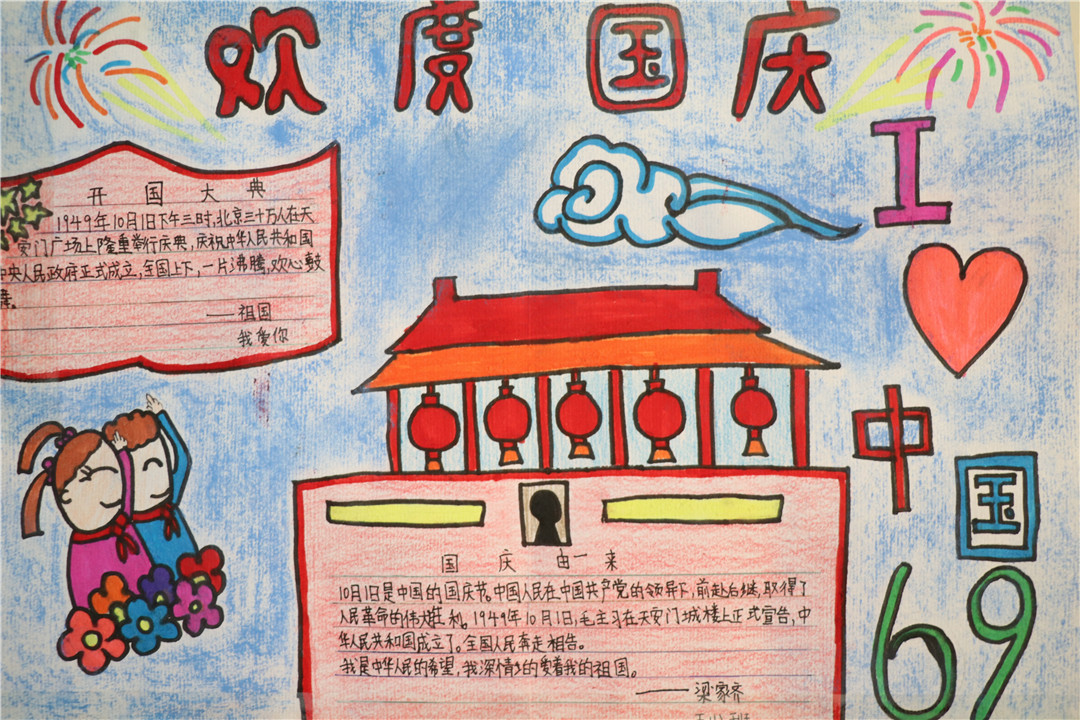 欢度国庆
开国大典
1949年10月1日下午三时,北京三十万人在天
安门广场上隆重举行庆典,庆祝中华人民共和国
中央人民政府正式成立,全国上下,一片沸腾,欢心鼓
舞。
——祖国
我爱你
I
中
国
69
国庆由一来
10月1日是中国的国庆节,中国人民在中国共产党的领导下,前赴后继,取得了
人民革命的伟大胜利。1949年10月1日,毛主习在天安门城楼上正式宣告,中
华人民共和国成立了。全国人民奔走相告。
我是中华人民的希望,我深情的爱着我的祖国。
——梁家齐